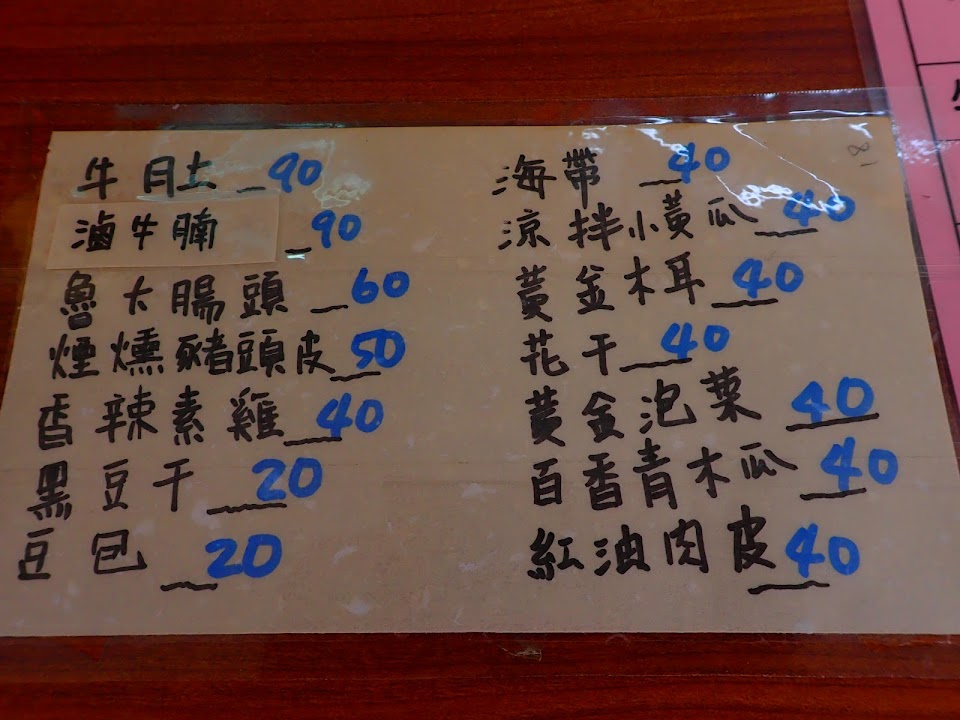 牛肚 90
滷牛腩 90
魯大腸頭 60
煙燻豬頭皮 50
香辣素雞 40
黑豆干 20
豆包 20
海帶 40
涼拌小黃瓜 40
黃金木耳 40
花干 40
黃金泡菜 40
百香青木瓜 40
紅油肉皮 40